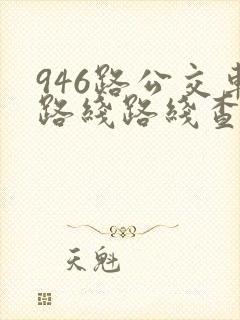 946路公交车
路线路线查
天魁